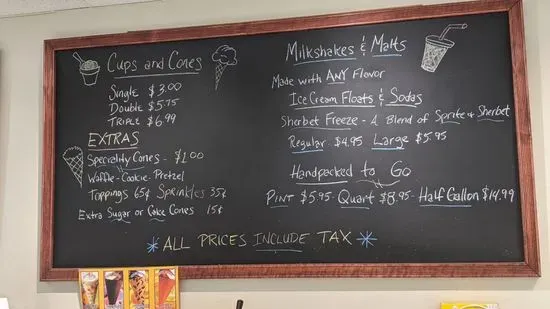 Cups and Cones
Single $3.00
Double $5.75
Triple $6.99
EXTRAS
Speciality Cones - $1.00
Waffle - Cookie - Pretzel
Toppings 65¢ Sprinkles 35¢
Extra Sugar or Cake Cones 15¢
Milkshakes & Malts
Made with ANY Flavor
Ice Cream Floats & Sodas
Sherbet Freeze - A Blend of Sprite & Sherbet
Regular $4.95 Large $5.95
Handpacked to Go
Pint $5.95 - Quart $8.95 - Half Gallon $14.99
*ALL PRICES INCLUDE TAX*